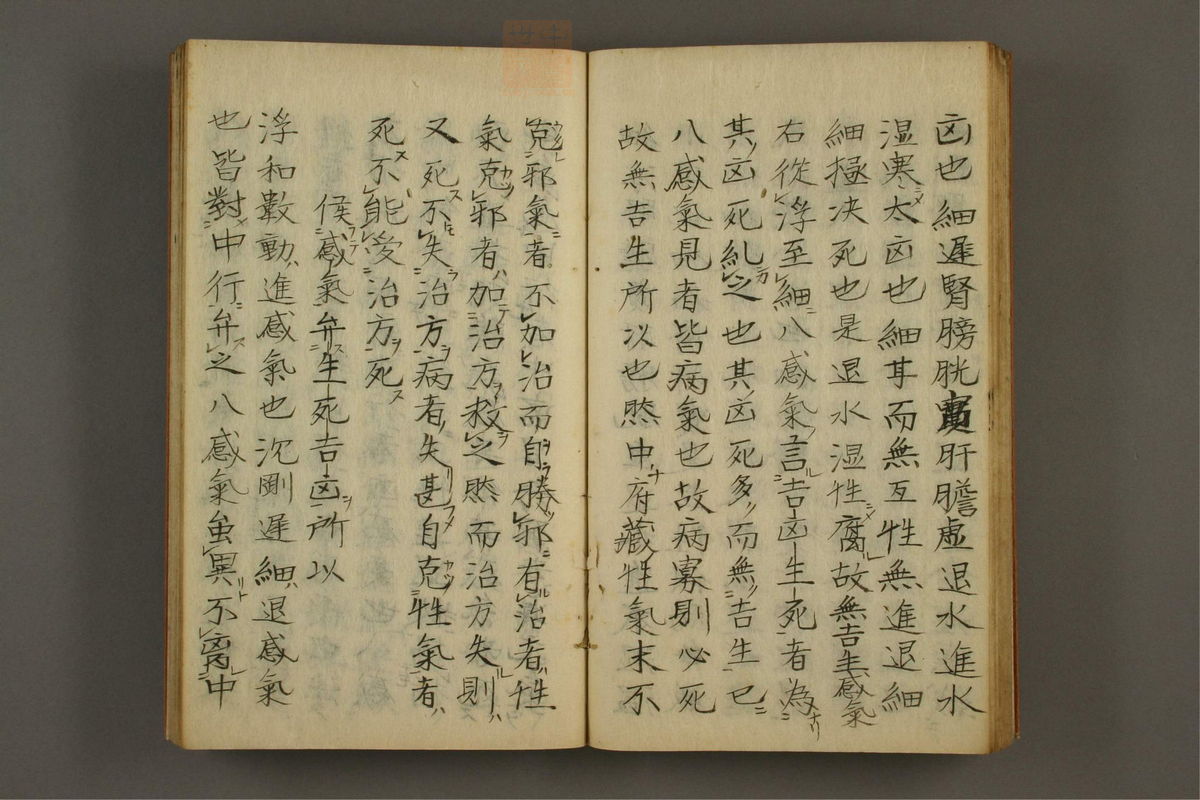 凶也細遲腎膀胱實肝膽虚退水進水
湿寒太凶也細耳而無互性無進退細
細極决死也是退水湿性腐故無吉生感氣
右從浮至細八感氣言吉凶生死者為
其凶死糺之也其凶死多而無吉生已
八感氣見者皆病氣也故病寡則必死
故無吉生所以也然中府藏性氣末不
克邪氣者不加治而自勝邪有治者性
氣克邪者加治方救之然而治方失則
又死不失治方病者失甚自克性氣者
死不能受治方死
候感氣弁生死吉凶所以
浮和數動進感氣也沈剛遲細退感氣
也皆對中行弁之八感氣虽異不凶丙中